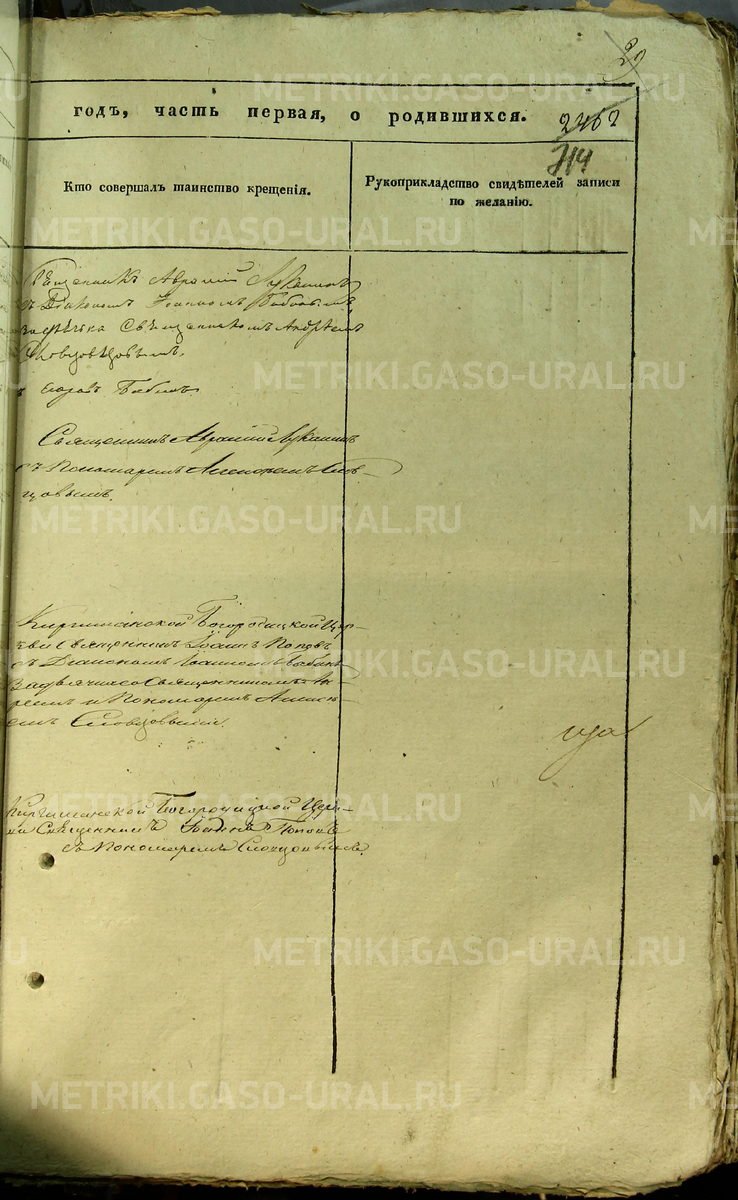 29
годъ, часть первая, о родившихся.
2462
714
Кто совершалъ таинство крещенія.
Рукоприкладство свидѣтелей записи
по желанію.
Священникъ Аврамій Лукинъ
съ Діакономъ Іоанномъ
Священникомъ Андреемъ
Словцовымъ
Священникъ Аврамій Лукинъ
съ Пономаремъ Алексѣемъ Слов-
цовымъ.
Киргишанской Богородицкой Цер-
кви Священникъ Іоаннъ Поповъ
съ Діакономъ Іоанномъ
Священникомъ Анд-
реемъ и Пономаремъ Алексѣ-
емъ Словцовымъ.
Киргишанской Богородицкой Цер-
кви Священникъ Іоаннъ Поповъ
съ Пономаремъ Словцовымъ.
METRIKI.GASO-URAL.RU